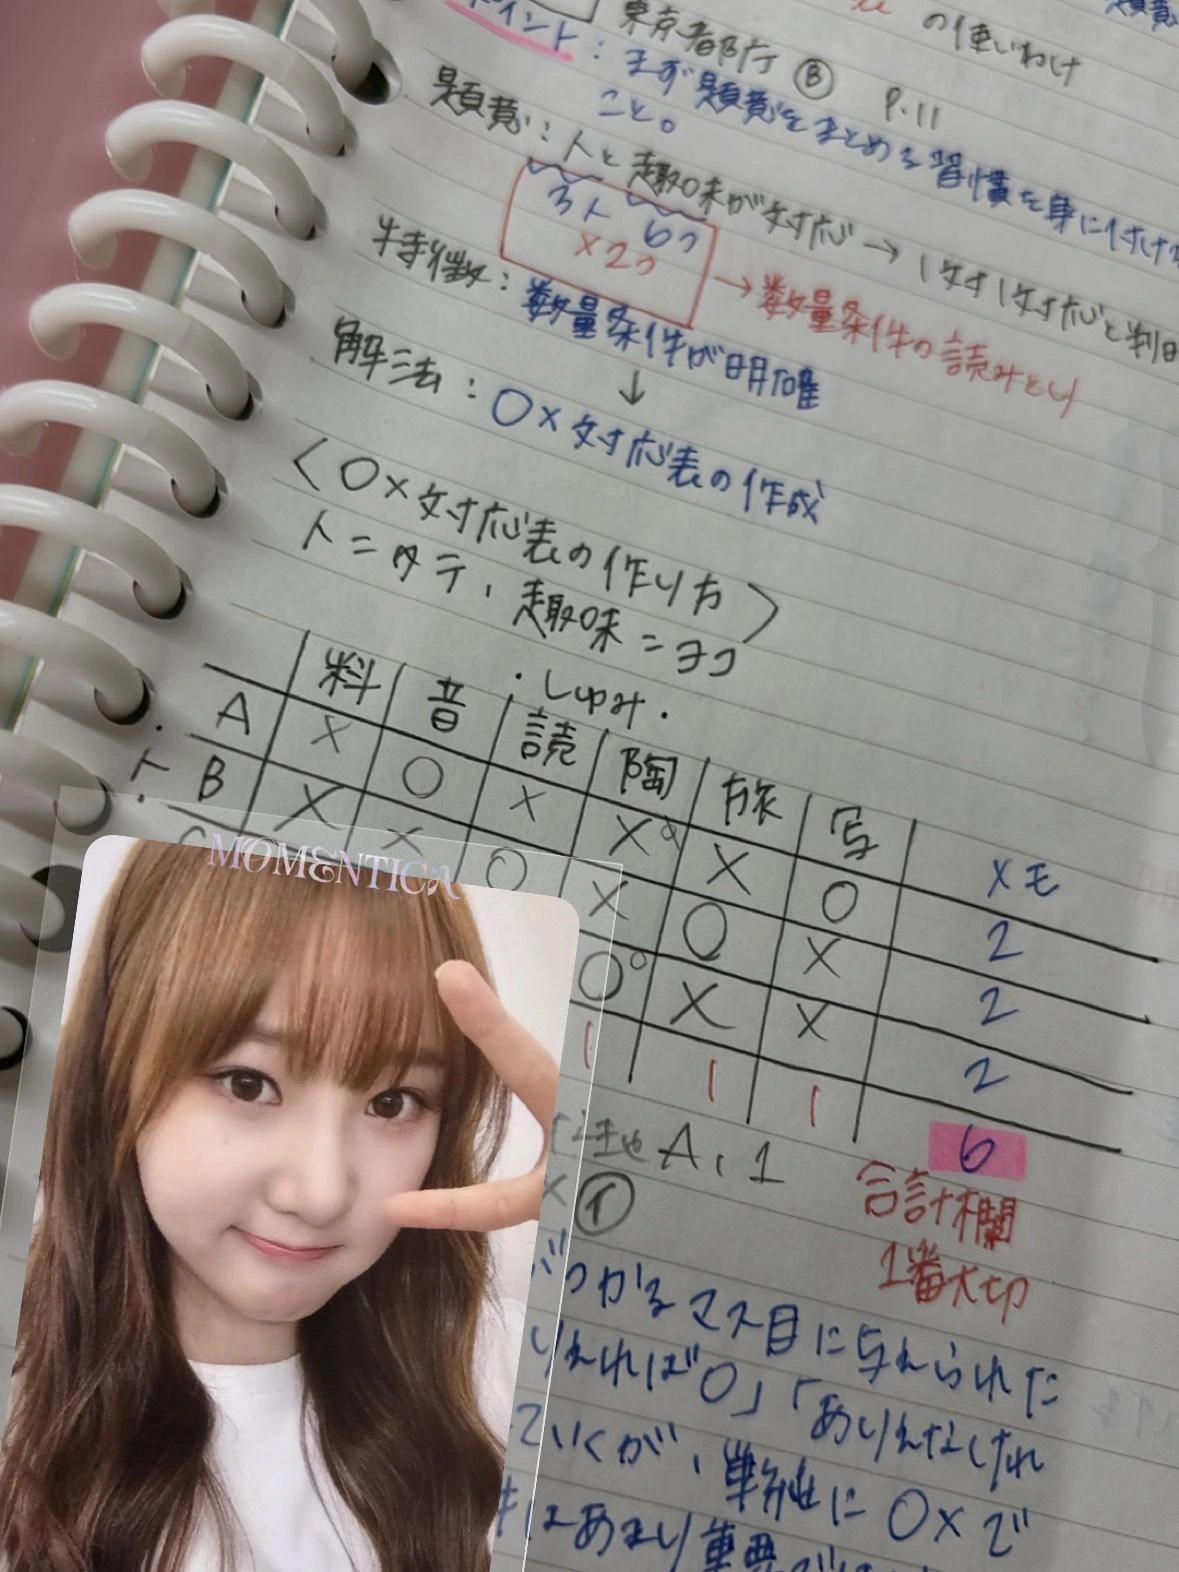 の使いわけ
東京都庁 Ⓑ P.11
ポイント：まず題意をまとめる習慣を身に付ける
こと。
題意：人と趣味が対応→1対1対応と判
3人 6つ
×2つ →数量条件の読みとり
特徴：数量条件が明確
↓
解法：○×対応表の作成
〈○×対応表の作り方〉
人＝タテ、趣味＝ヨコ
・しゅみ・
料 音 読 陶 旅 写 メモ
A × ○ × × × ○ 2
・人・
B × × ○ × ○ × 2
C ○ × × 2
1 1 1 6
A、1
× ①
合計欄
1番大切
ぶつかるマス目に与えられた
りえれば○」「ありえなけれ
ていくが、単純に○×で
はあまり重要では
MOMENTICA